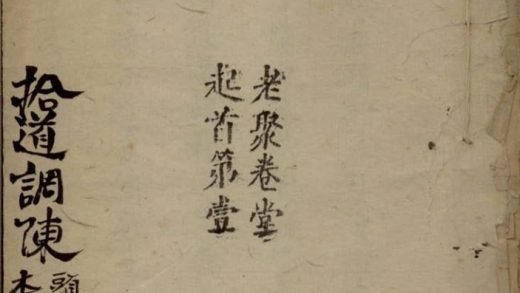 老聚卷堂
起首第壹
拾道調陳
頭
本